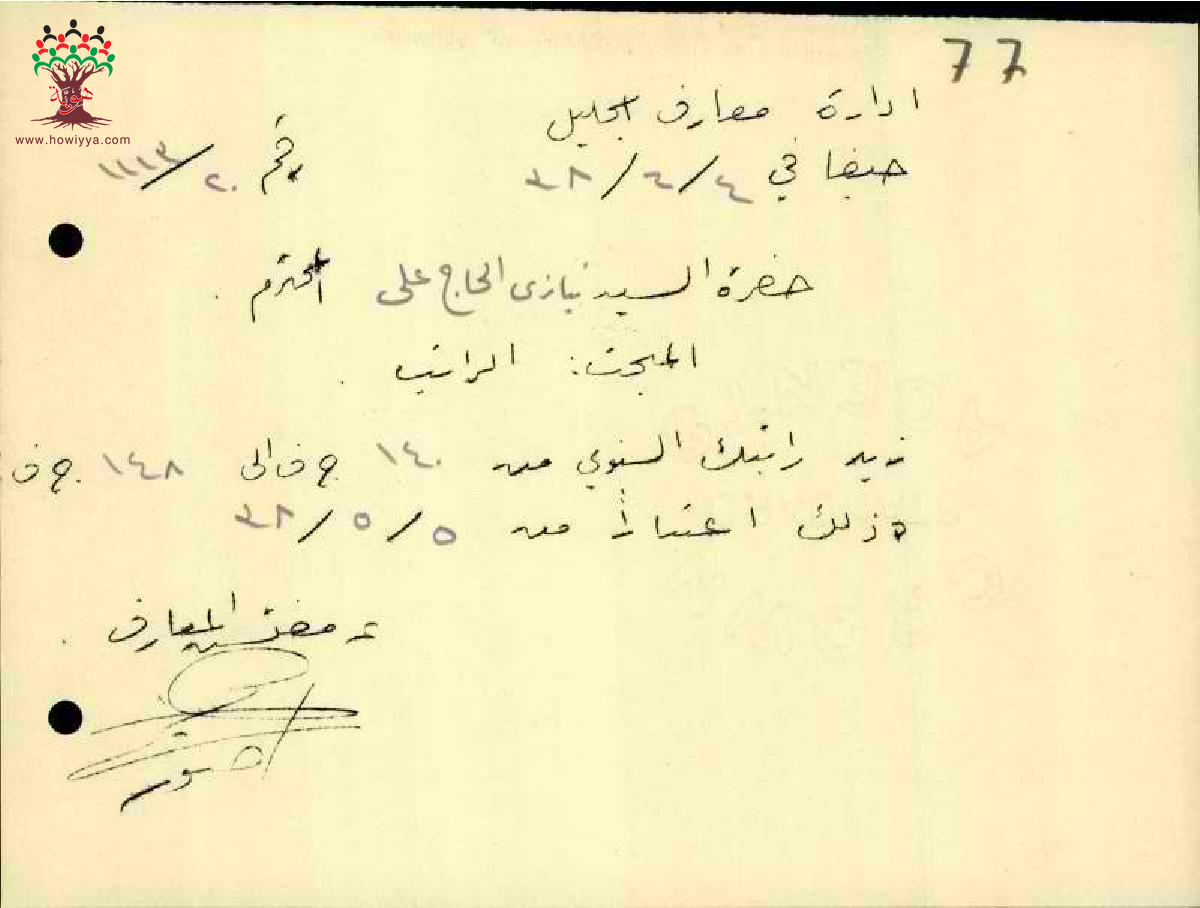 77
هوية
www.howiyya.com
ادارة معارف الجليل
حيفا في ٤/٤/٣٨ رقم ٢٠/١١١٣
حضرة السيد نيازى الحاج على المحترم .
المبحث : الراتب .
زيد راتبك السنوي من ١٤٠ ج ف الى ١٤٨ ج ف
وذلك اعتباراً من ٥/٥/٣٨
عن مفتش المعارف .